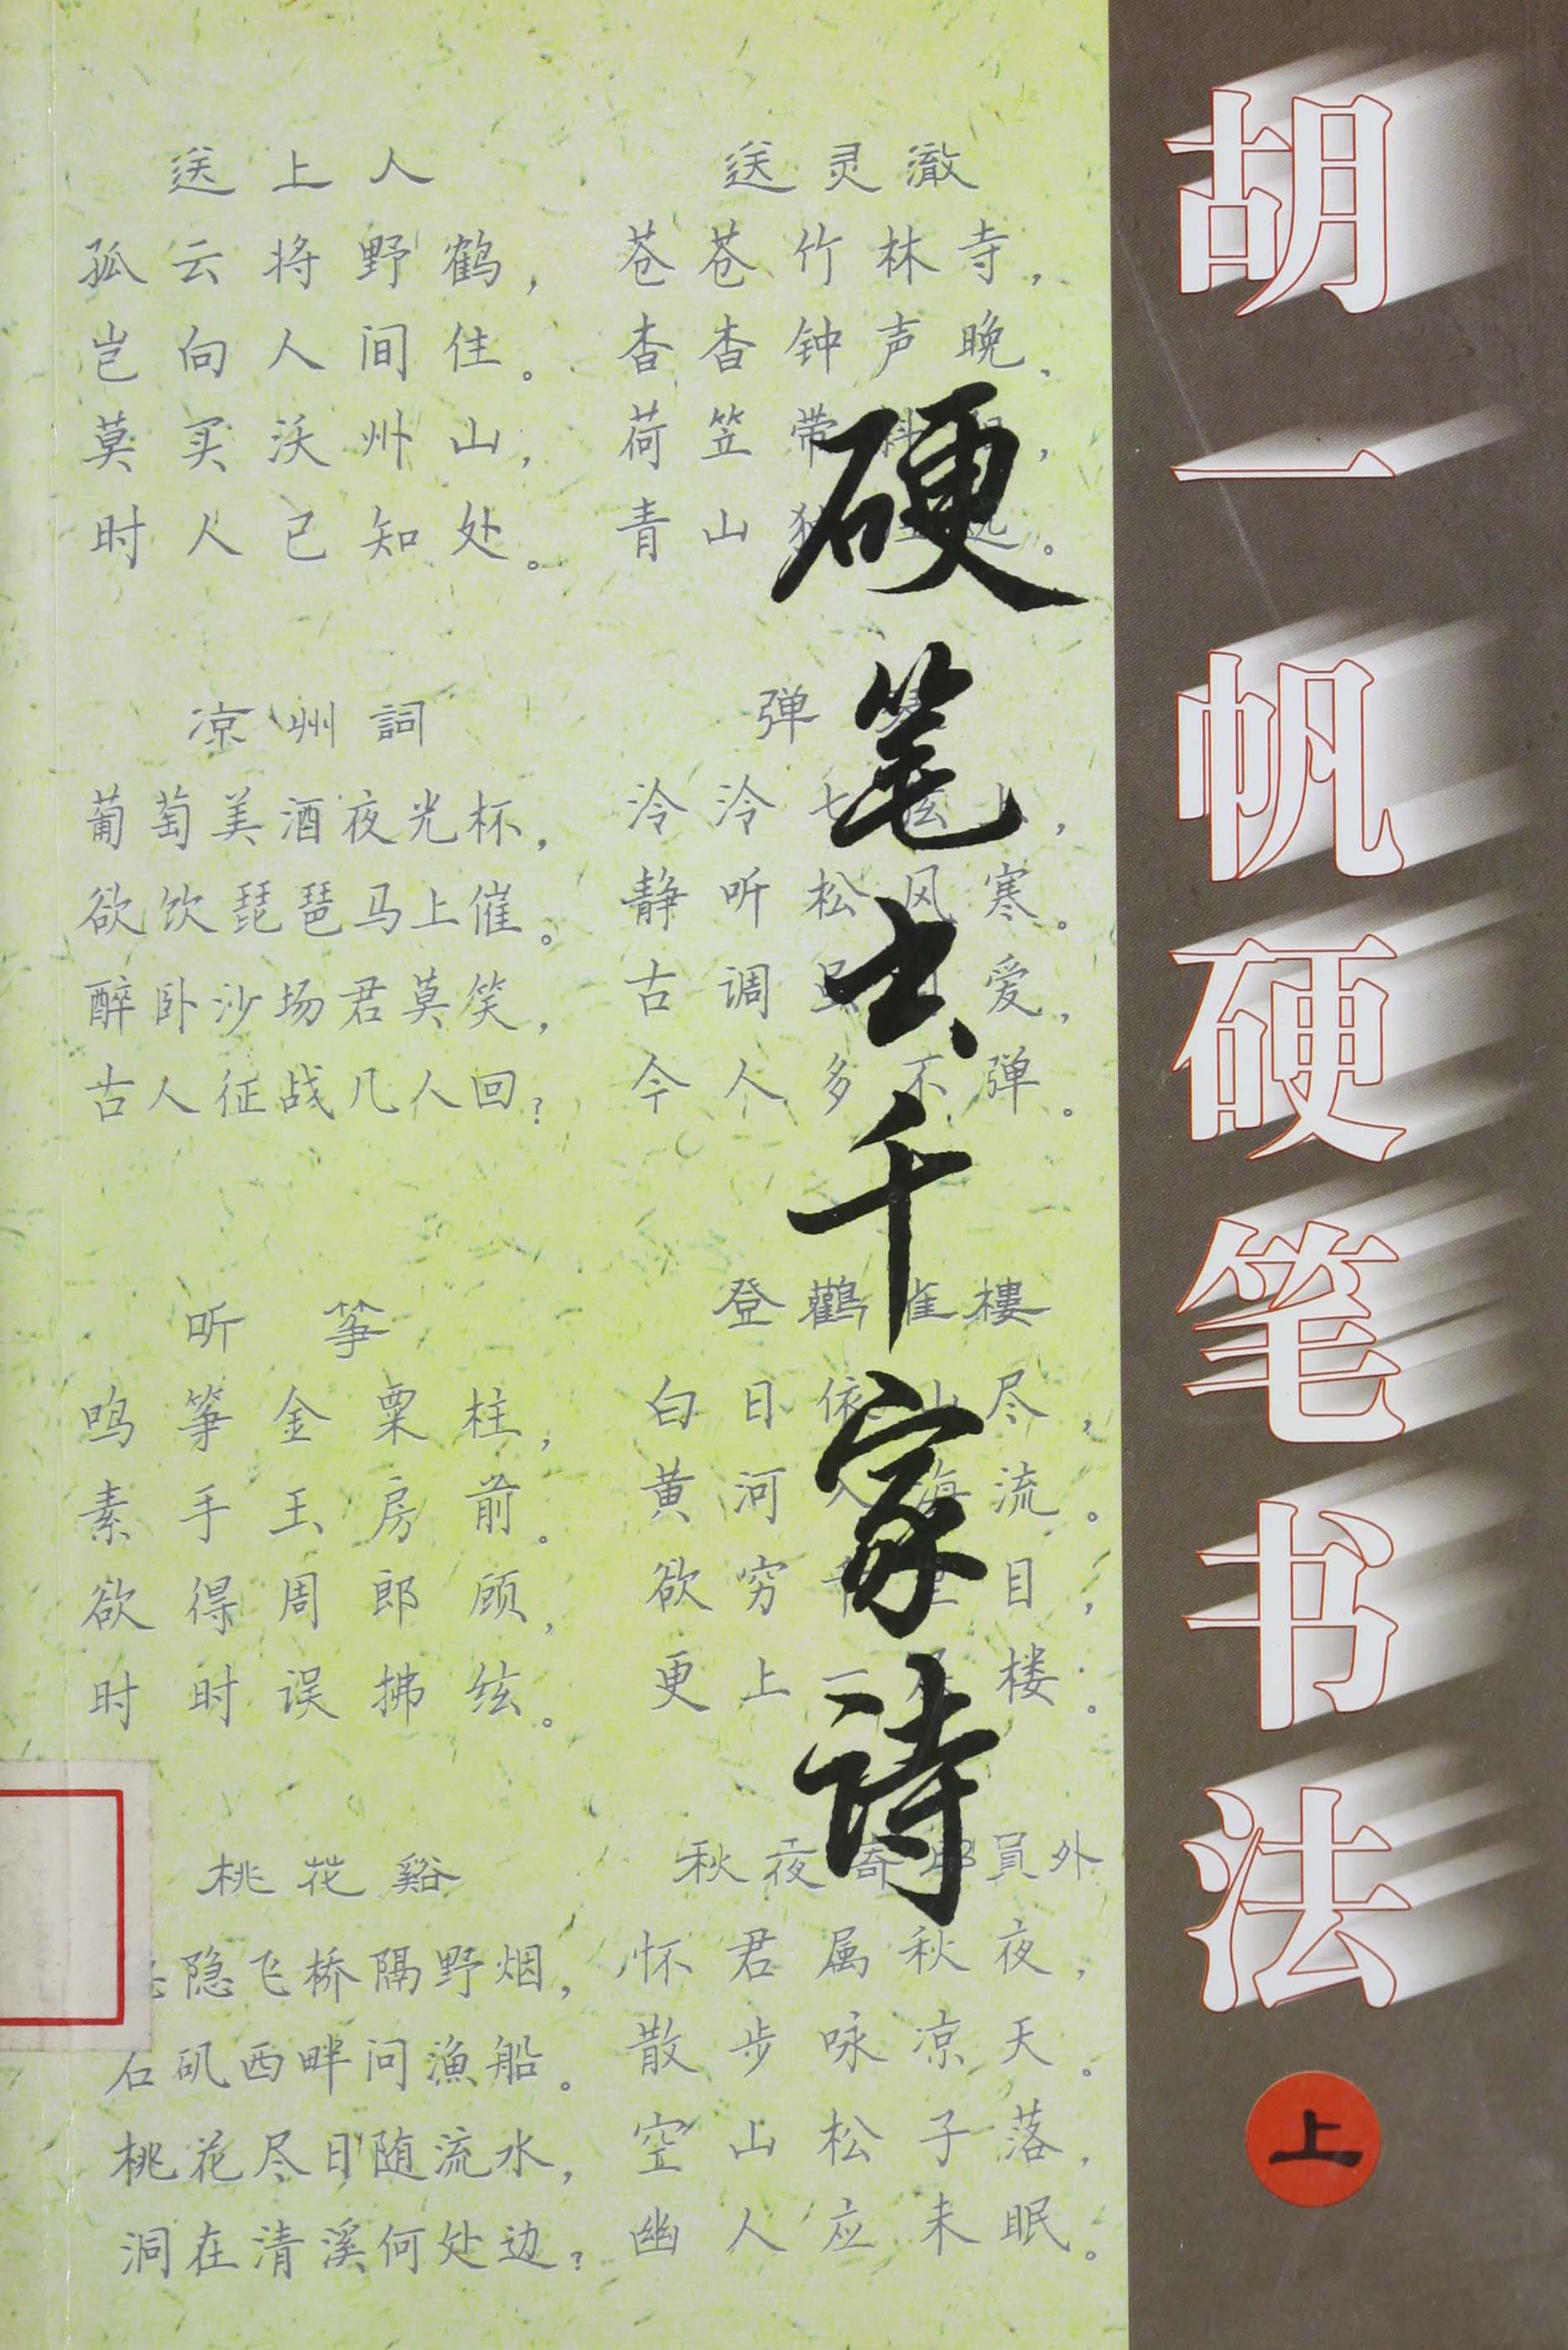 胡一帆硬笔书法
上
硬笔书千家诗
送上人
孤云将野鹤，
岂向人间住。
莫买沃州山，
时人已知处。
送灵澈
苍苍竹林寺，
杳杳钟声晚。
荷笠带斜，
青山独远。
凉州詞
葡萄美酒夜光杯，
欲饮琵琶马上催。
醉卧沙场君莫笑，
古人征战几人回？
弹
泠泠七弦，
静听松风寒。
古调虽爱，
今人多不弹。
听筝
鸣筝金粟柱，
素手玉房前。
欲得周郎顾，
时时误拂弦。
登鸛雀樓
白日依山尽，
黄河入海流。
欲穷千里目，
更上一层楼。
桃花谿
隐飞桥隔野烟，
石矶西畔问漁船。
桃花尽日随流水，
洞在清溪何处边？
秋夜寄邱員外
怀君属秋夜，
散步咏凉天。
空山松子落，
幽人应未眠。